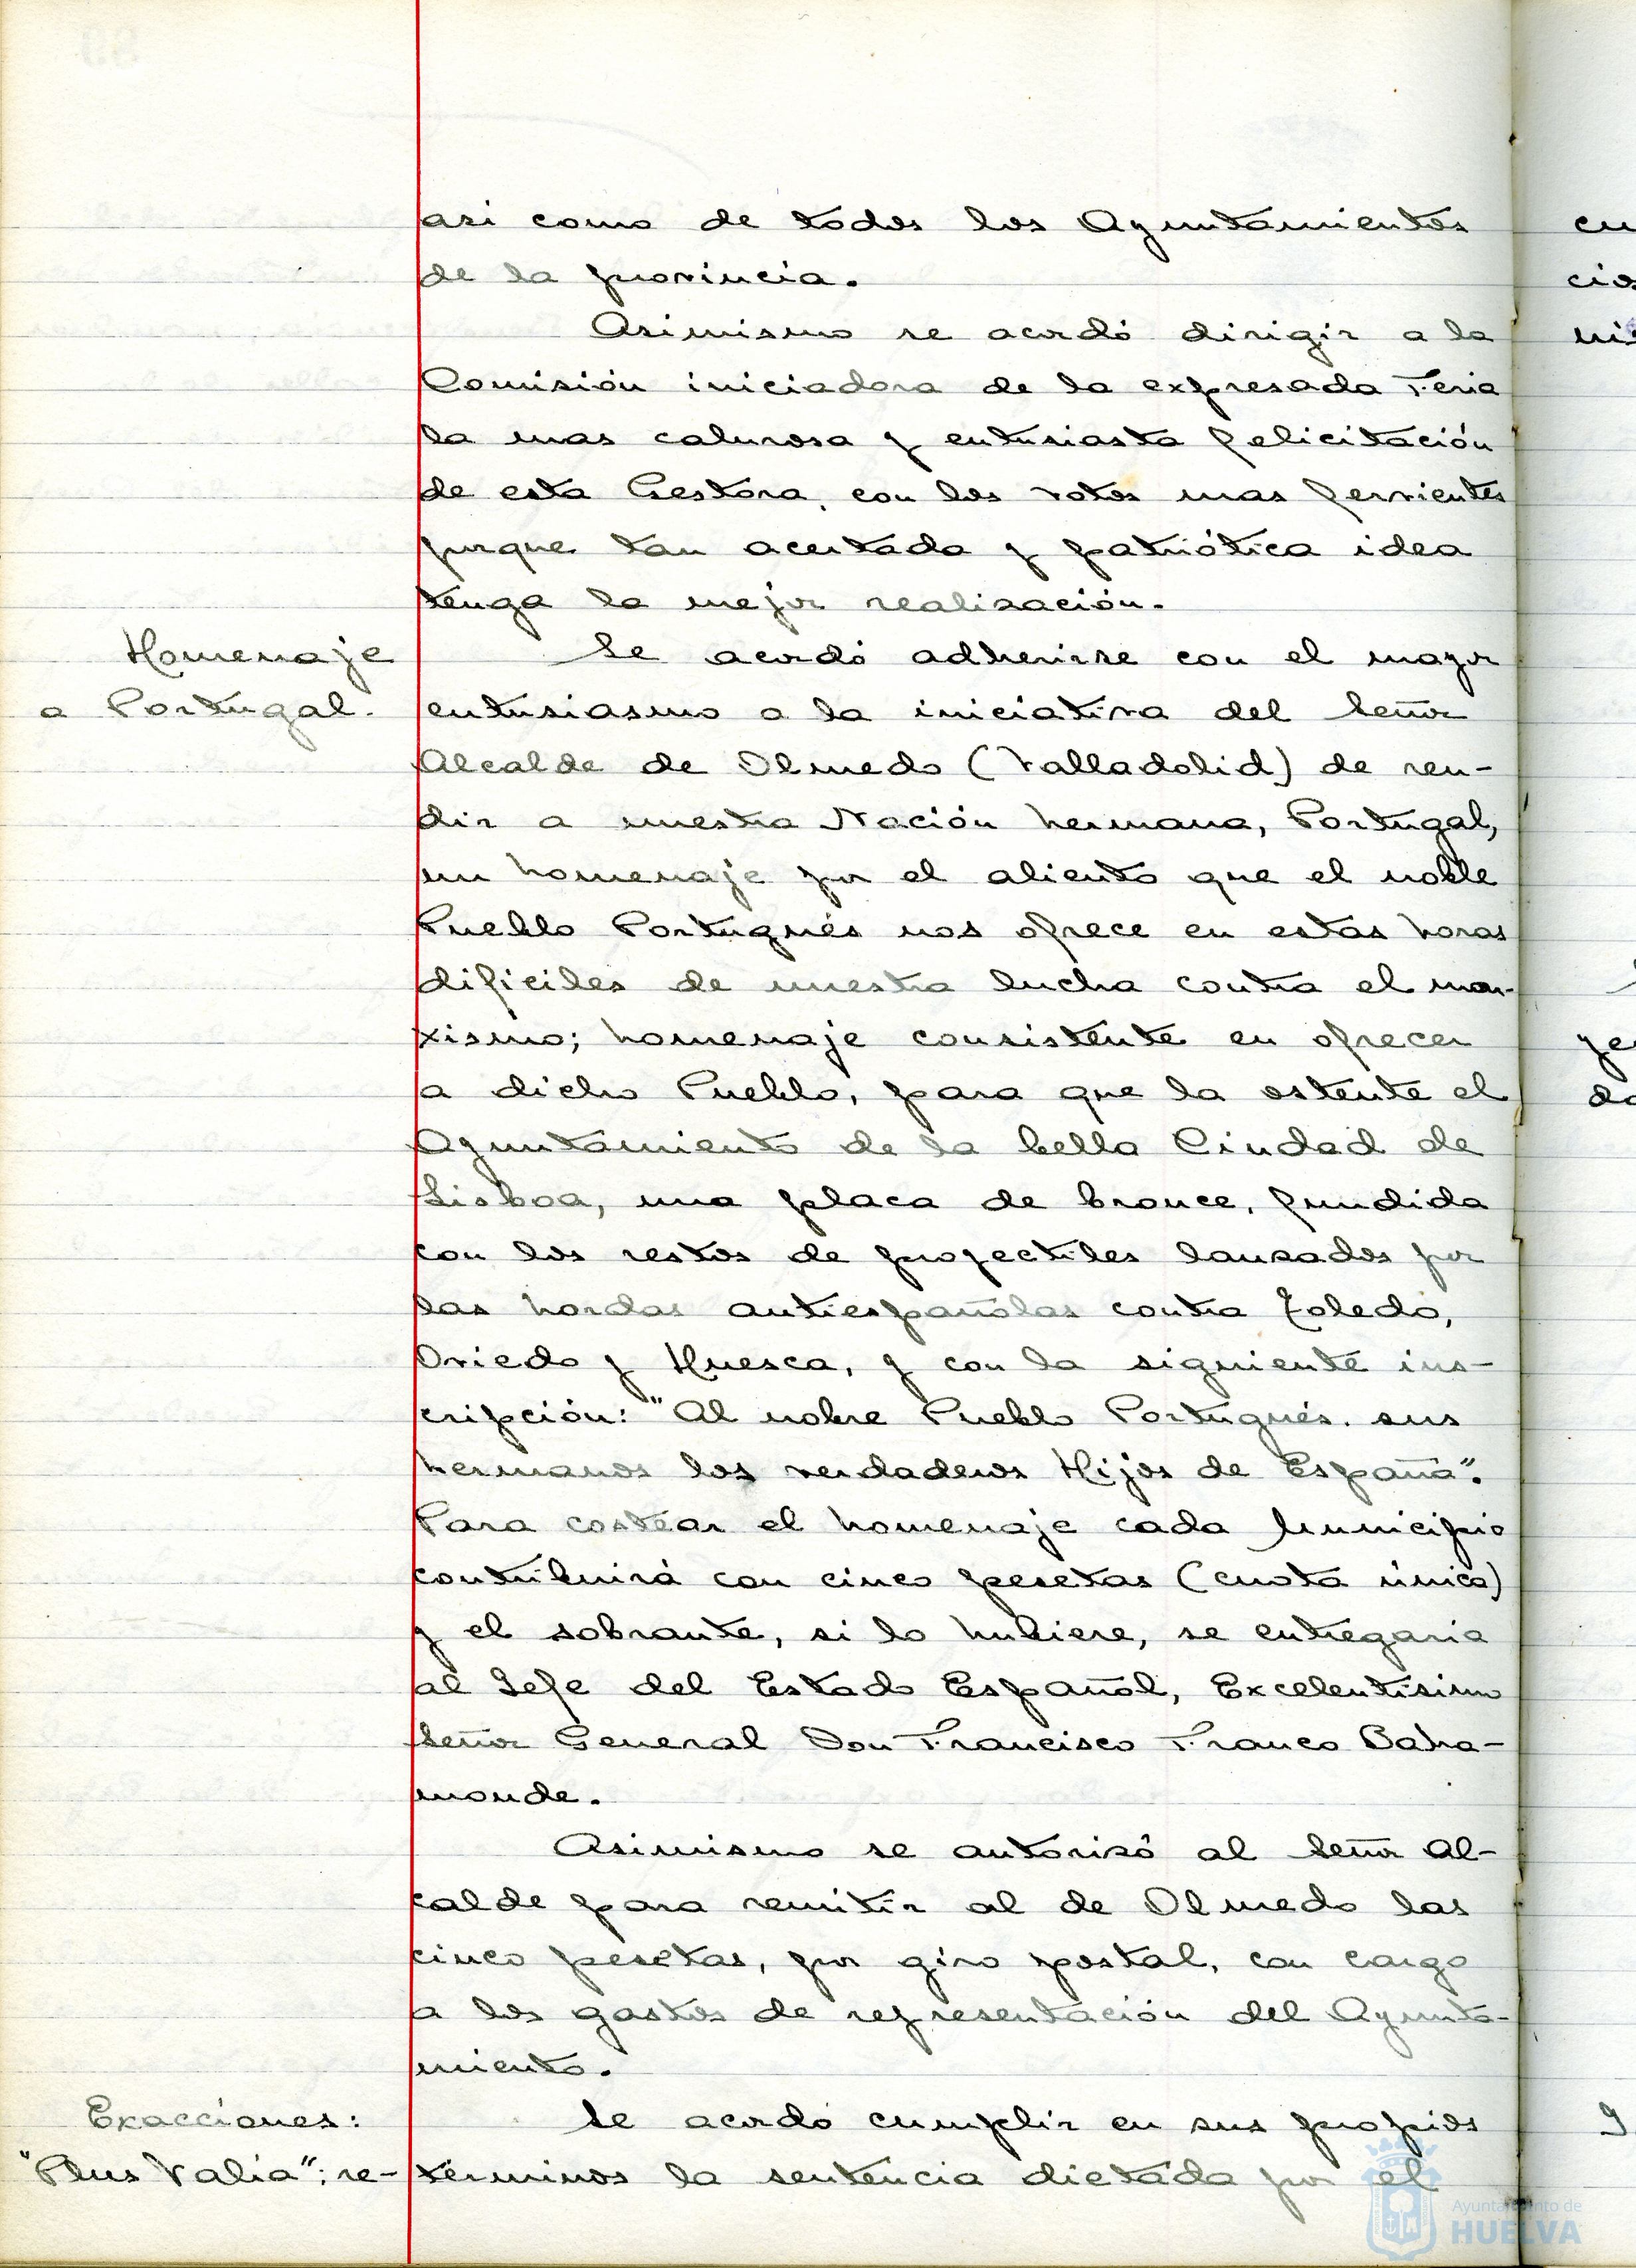 asi como de todos los Ayuntamientos
de la provincia.
Asimismo se acordó dirigir a la
Comisión iniciadora de la expresada Feria
la mas calurosa y entusiasta felicitación
de esta Gestora, con los votos mas fervientes
porque tan acertada y patriótica idea
tenga la mejor realización.
Homenaje
a Portugal.
Se acordó adherirse con el mayor
entusiasmo a la iniciativa del Señor
Alcalde de Olmedo (Valladolid) de ren-
dir a nuestra Nación hermana, Portugal,
un homenaje por el aliento que el noble
Pueblo Portugués nos ofrece en estas horas
dificiles de nuestra lucha contra el mar-
xismo; homenaje consistente en ofrecer
a dicho Pueblo, para que la ostente el
Ayuntamiento de la bella Ciudad de
Lisboa, una placa de bronce, fundida
con los restos de proyectiles lanzados por
las hordas antiespañolas contra Toledo,
Oviedo y Huesca, y con la siguiente ins-
cripción: "Al noble Pueblo Portugués. sus
hermanos los verdaderos Hijos de España".
Para costear el homenaje cada Municipio
contribuirá con cinco pesetas (cuota única)
y el sobrante, si lo hubiere, se entregaria
al Jefe del Estado Español, Excelentísimo
Señor General Don Francisco Franco Baha-
monde.
Asimismo se autorizó al Señor Al-
calde para remitir al de Olmedo las
cinco pesetas, por giro postal, con cargo
a los gastos de representación del Ayunta-
miento.
Exacciones:
"Plus Valia": re-
Se acordó cumplir en sus propios
términos la sentencia dictada por el
Ayuntamiento de
HUELVA